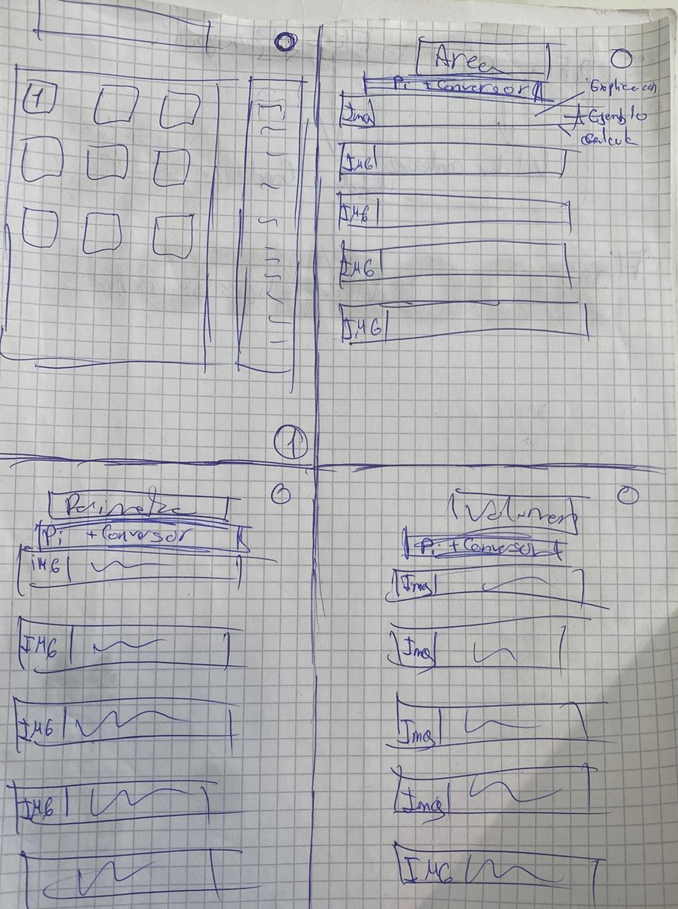 1
1
Area
Pi + Conversor
Explicacion
Img
+ Ejemplo
Calculo
IMG
IMG
IMG
IMG
Perimetro
Pi + Conversor
IMG
IMG
IMG
IMG
Volumen
Pi + Conversor
Img
Img
Img
Img
IMG